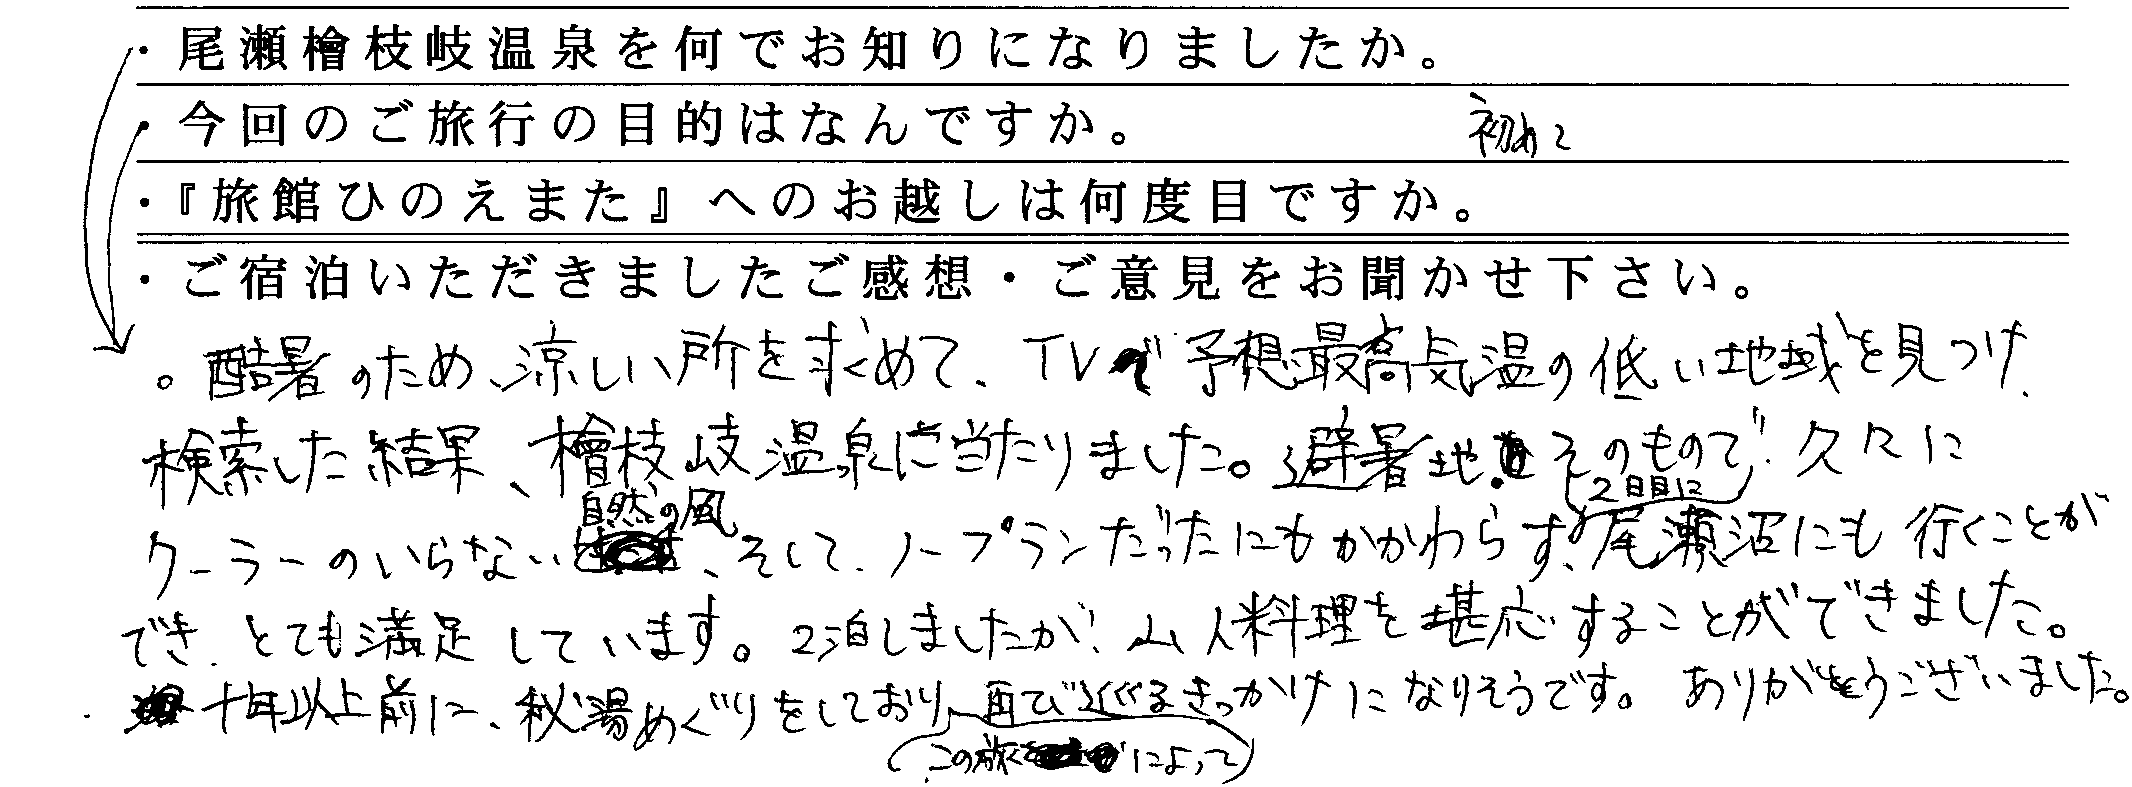 ・尾瀬檜枝岐温泉を何でお知りになりましたか。
・今回のご旅行の目的はなんですか。
初めて
・『旅館ひのえまた』へのお越しは何度目ですか。
・ご宿泊いただきましたご感想・ご意見をお聞かせ下さい。
。酷暑のため、涼しい所を求めて、TVで予想最高気温の低い地域を見つけ、
検索した結果、檜枝岐温泉に当たりました。避暑地そのもので、久々に
自然の風
2日目に
クーラーのいらない、そして、ノープランだったにもかかわらず、尾瀬沼にも行くことが
でき、とても満足しています。2泊しましたが、山人料理を堪応することができました。
十年以上前に、秘湯めぐりをしており、再び巡るきっかけになりそうです。ありがとうございました。
(この旅によって)